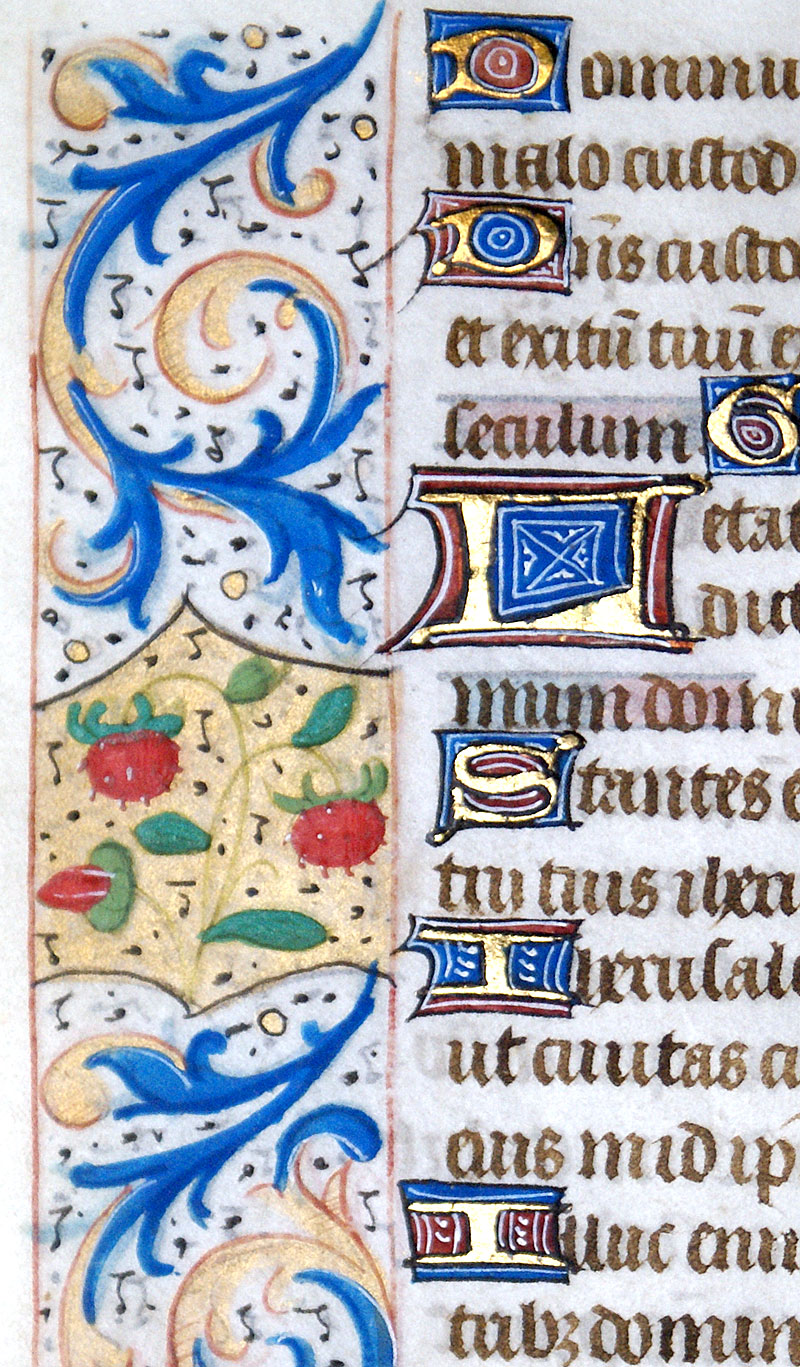 Dominu
malo custod
Dn̄s custo
et exitū tuū e
seculum G
Letat
dict
mum dom
Stantes e
trii tuis iheru
Iherusale
ut ciuitas c
eius in id ip̄
Illuc eni
tribꝫ domin